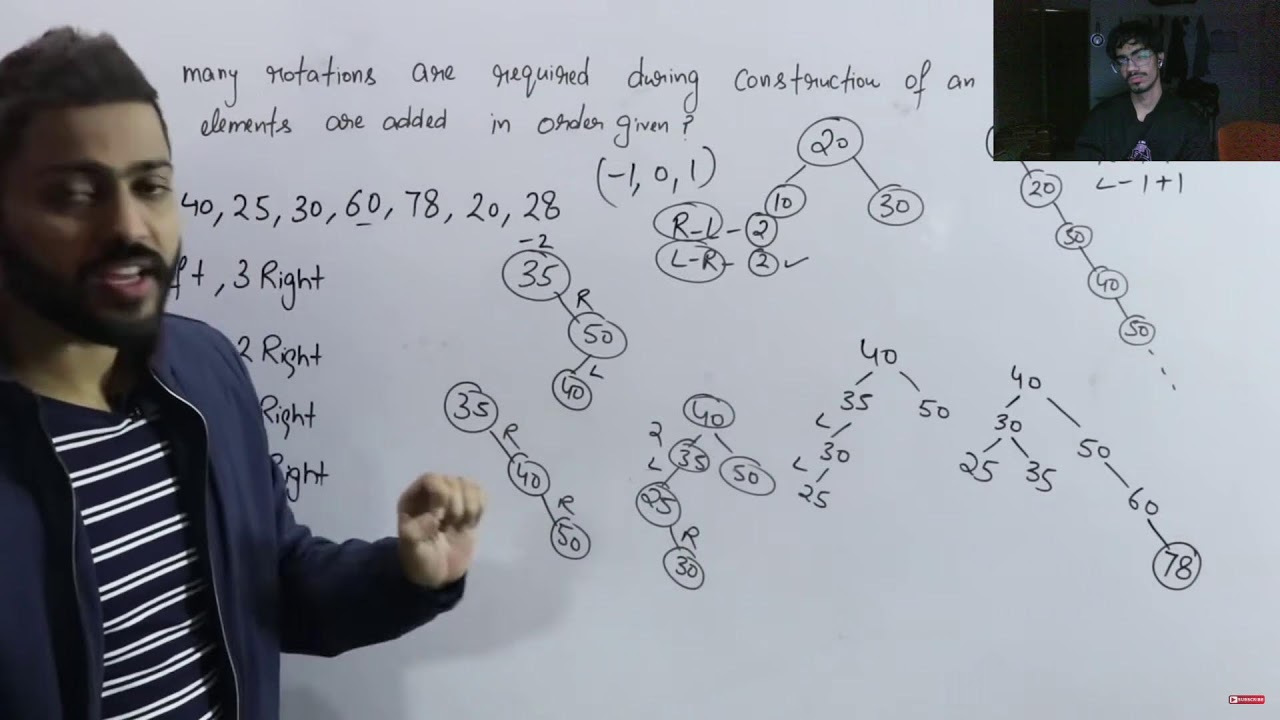 many rotations are required during construction of an
elements are added in order given?
40, 25, 30, 60, 78, 20, 28
(-1, 0, 1)
, 3 Right
2 Right
Right
Right
-2
35
R
50
40 L
35
R
40
R
50
20
10
30
R-L - 2
L-R - 2 ✓
2
40
L
35
50
25
R
30
40
35
50
L
30
L
25
40
30
50
25
35
60
78
L-1+1
20
30
40
50
SUBSCRIBE